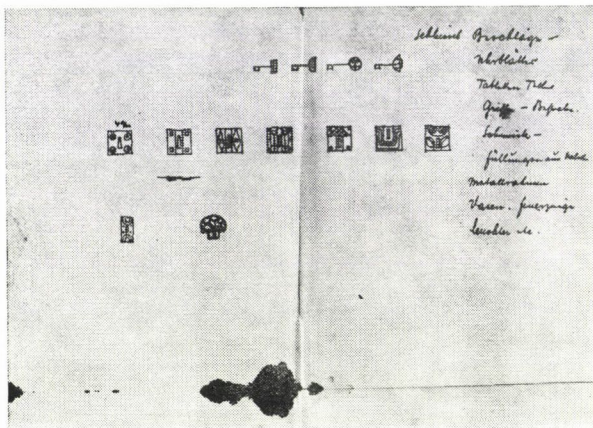 Schlüssel Beschläge –
Uhrblätter
Tabletten Teller
Griffe – Besch.
Schmuck –
Füllungen aus
Metallrahmen
Vasen. Feuerzeuge
Leuchter etc.